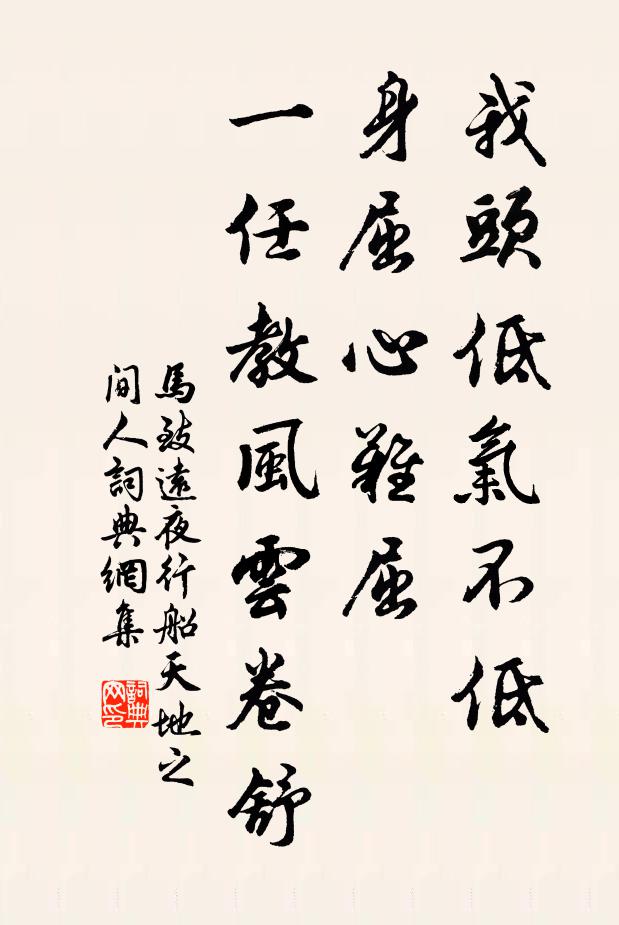 我頭低氣不低
身屈心難屈
一任教風雲卷舒
馬致遠夜行船天地之
間人詞典網集
詞典網印